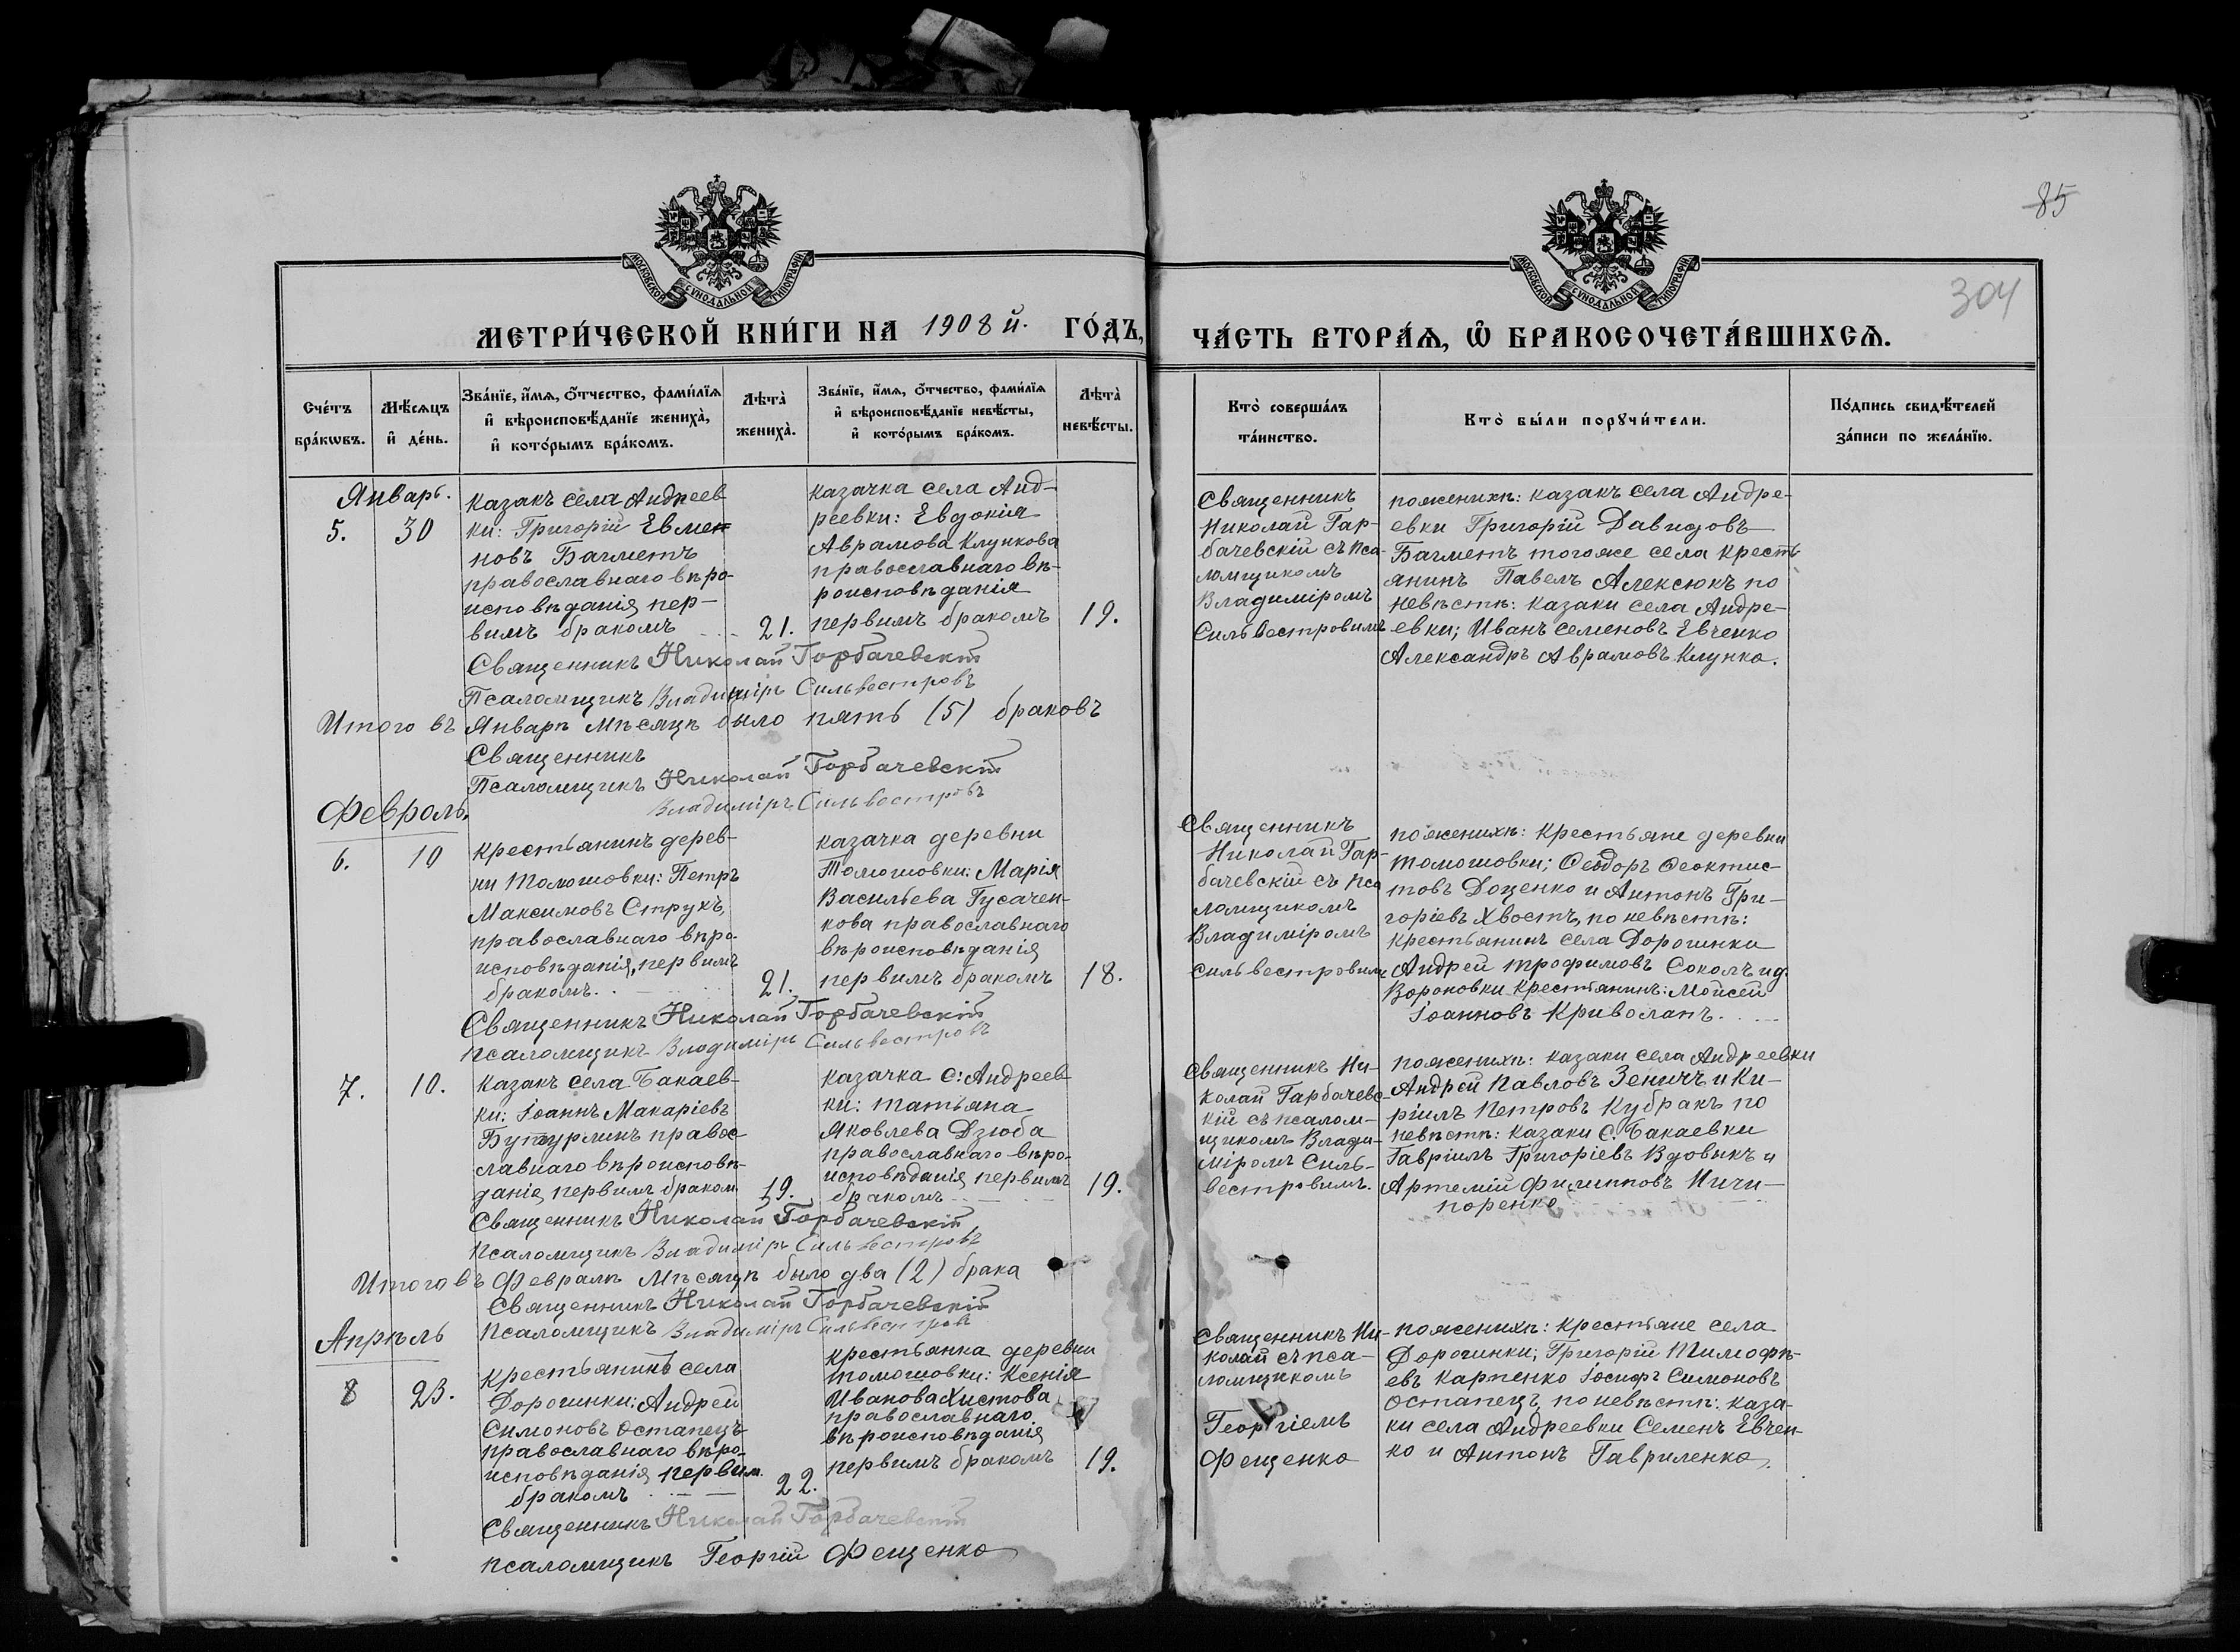 85
304
МОСКОВСКОЙ СѴНОДАЛЬНОЙ ТИПОГРАФІИ
МОСКОВСКОЙ СѴНОДАЛЬНОЙ ТИПОГРАФІИ
МЕТРИ́ЧЕСКОЙ КНИ́ГИ НА 1908 й. ГО́ДЪ,
ЧА́СТЬ ВТОРА́Ѧ, Ѡ҆ БРАКОСОЧЕТА́ВШИХСѦ.
Сче́тъ бра́кѡвъ.
Мѣ́сѧцъ и҆ де́нь.
Зва́нїе, и҆́мѧ, ѻ҆́тчество, фами́лїѧ
и҆ вѣроисповѣ́данїе жениха̀,
и҆ кото́рымъ бра́комъ.
Лѣта̀ жениха̀.
Зва́нїе, и҆́мѧ, ѻ҆́тчество, фами́лїѧ
и҆ вѣроисповѣ́данїе невѣ́сты,
и҆ кото́рымъ бра́комъ.
Лѣта̀ невѣ́сты.
Кто̀ соверша́лъ
та́инство.
Кто̀ бы́ли порꙋчи́тели.
По́дпись свидѣ́телей
за́писи по жела́нїю.
Январь.
5. 30
казакъ села Андреев
ки: Григорій Евмен
новъ Багметъ
православнаго вѣро-
исповѣданія пер-
вимъ бракомъ
21.
казачка села Анд-
реевки: Евдокія
Аврамова Клункова
православнаго вѣ-
роисповѣданія
первимъ бракомъ
19.
Священникъ
Николай Гар-
бачевскій съ пса-
ломщикомъ
Владиміромъ
Сильвестровимъ
по женихѣ: казакъ села Андре-
евки Григорій Давидовъ
Багметъ того же села кресть
янинъ Павелъ Алексюкъ по
невѣстѣ: казаки села Андре-
евки; Иванъ Семеновъ Евченко
Александръ Аврамовъ Клунко.
Священникъ Николай Горбачевскій
Псаломщикъ Владиміръ Сильвестровъ
Итого въ Январѣ мѣсяцѣ было пять (5) браковъ
Священникъ
Псаломщикъ Николай Горбачевскій
Владиміръ Сильвестровъ
Февроль.
6. 10
крестьянинъ дерев-
ни Томошовки: Петръ
Максимовъ Струкъ,
православнаго вѣро-
исповѣданія, первимъ
бракомъ.
21.
казачка деревни
Томошовки: Марія
Васильева Гусачен-
кова православнаго
вѣроисповѣданія
первимъ бракомъ
18.
Священникъ
Николай Гар-
бачевскій съ пса
ломщикомъ
Владиміромъ
Сильвестровимъ
по женихѣ: крестьяне деревни
Томошовки; Ѳеодоръ Ѳеоктис-
товъ Доценко и Антонъ Гри-
горіевъ Хвостъ, по невѣстѣ:
крестьянинъ села Дорогинки
Андрей Трофимовъ Соколъ и д.
Вороновки крестьянинъ: Мойсей
Іоанновъ Криволапъ.
Священникъ Николай Горбачевскій
псаломщикъ Владиміръ Сильвестровъ
7. 10.
казакъ села Бакаев-
ки: Іоаннъ Макаріевъ
Бутурлинъ правос-
лавнаго вѣроисповѣ-
данія первимъ браком
19.
казачка с: Андреев
ки: Татьяна
Яковлева Дзюба
православнаго вѣро-
исповѣданія первимъ
бракомъ
19.
Священникъ Ни-
колай Гарбачевс-
кій съ псалом-
щикомъ Влади-
міромъ Силь-
вестровимъ.
по женихѣ: казаки села Андреевки
Андрей Павловъ Зеничъ и Ки-
рiилъ Петровъ Кубракъ по
невѣстѣ: казаки с. Бакаевки
Гавріилъ Григоріевъ Вдовыкъ и
Артемій Филипповъ Ничи-
поренко
Священникъ Николай Горбачевскій
псаломщикъ Владиміръ Сильвестровъ
Итого въ Февралѣ мѣсяцѣ было два (2) брака
Священникъ Николай Горбачевскій
псаломщикъ Владиміръ Сильвестровъ
Апрѣль
8 23.
крестьянинъ села
Дорогинки: Андрей
Симоновъ Остапецъ
православнаго вѣро-
исповѣданія первим.
бракомъ
22.
крестьянка деревни
Томошовки: Ксенія
Иванова Хистова
православнаго
вѣроисповѣданія
первимъ бракомъ
19.
Священникъ Ни-
колай съ пса-
ломщикомъ
Георгіемъ
Фещенко
по женихѣ: крестьяне села
Дорогинки; Григорій Тимофѣ-
евъ Карпенко Іосифъ Симоновъ
Остапецъ по невѣстѣ: каза-
ки села Андреевки Семенъ Евчен-
ко и Антонъ Гавриленко.
Священникъ Николай Горбачевскій
псаломщикъ Георгій Фещенко